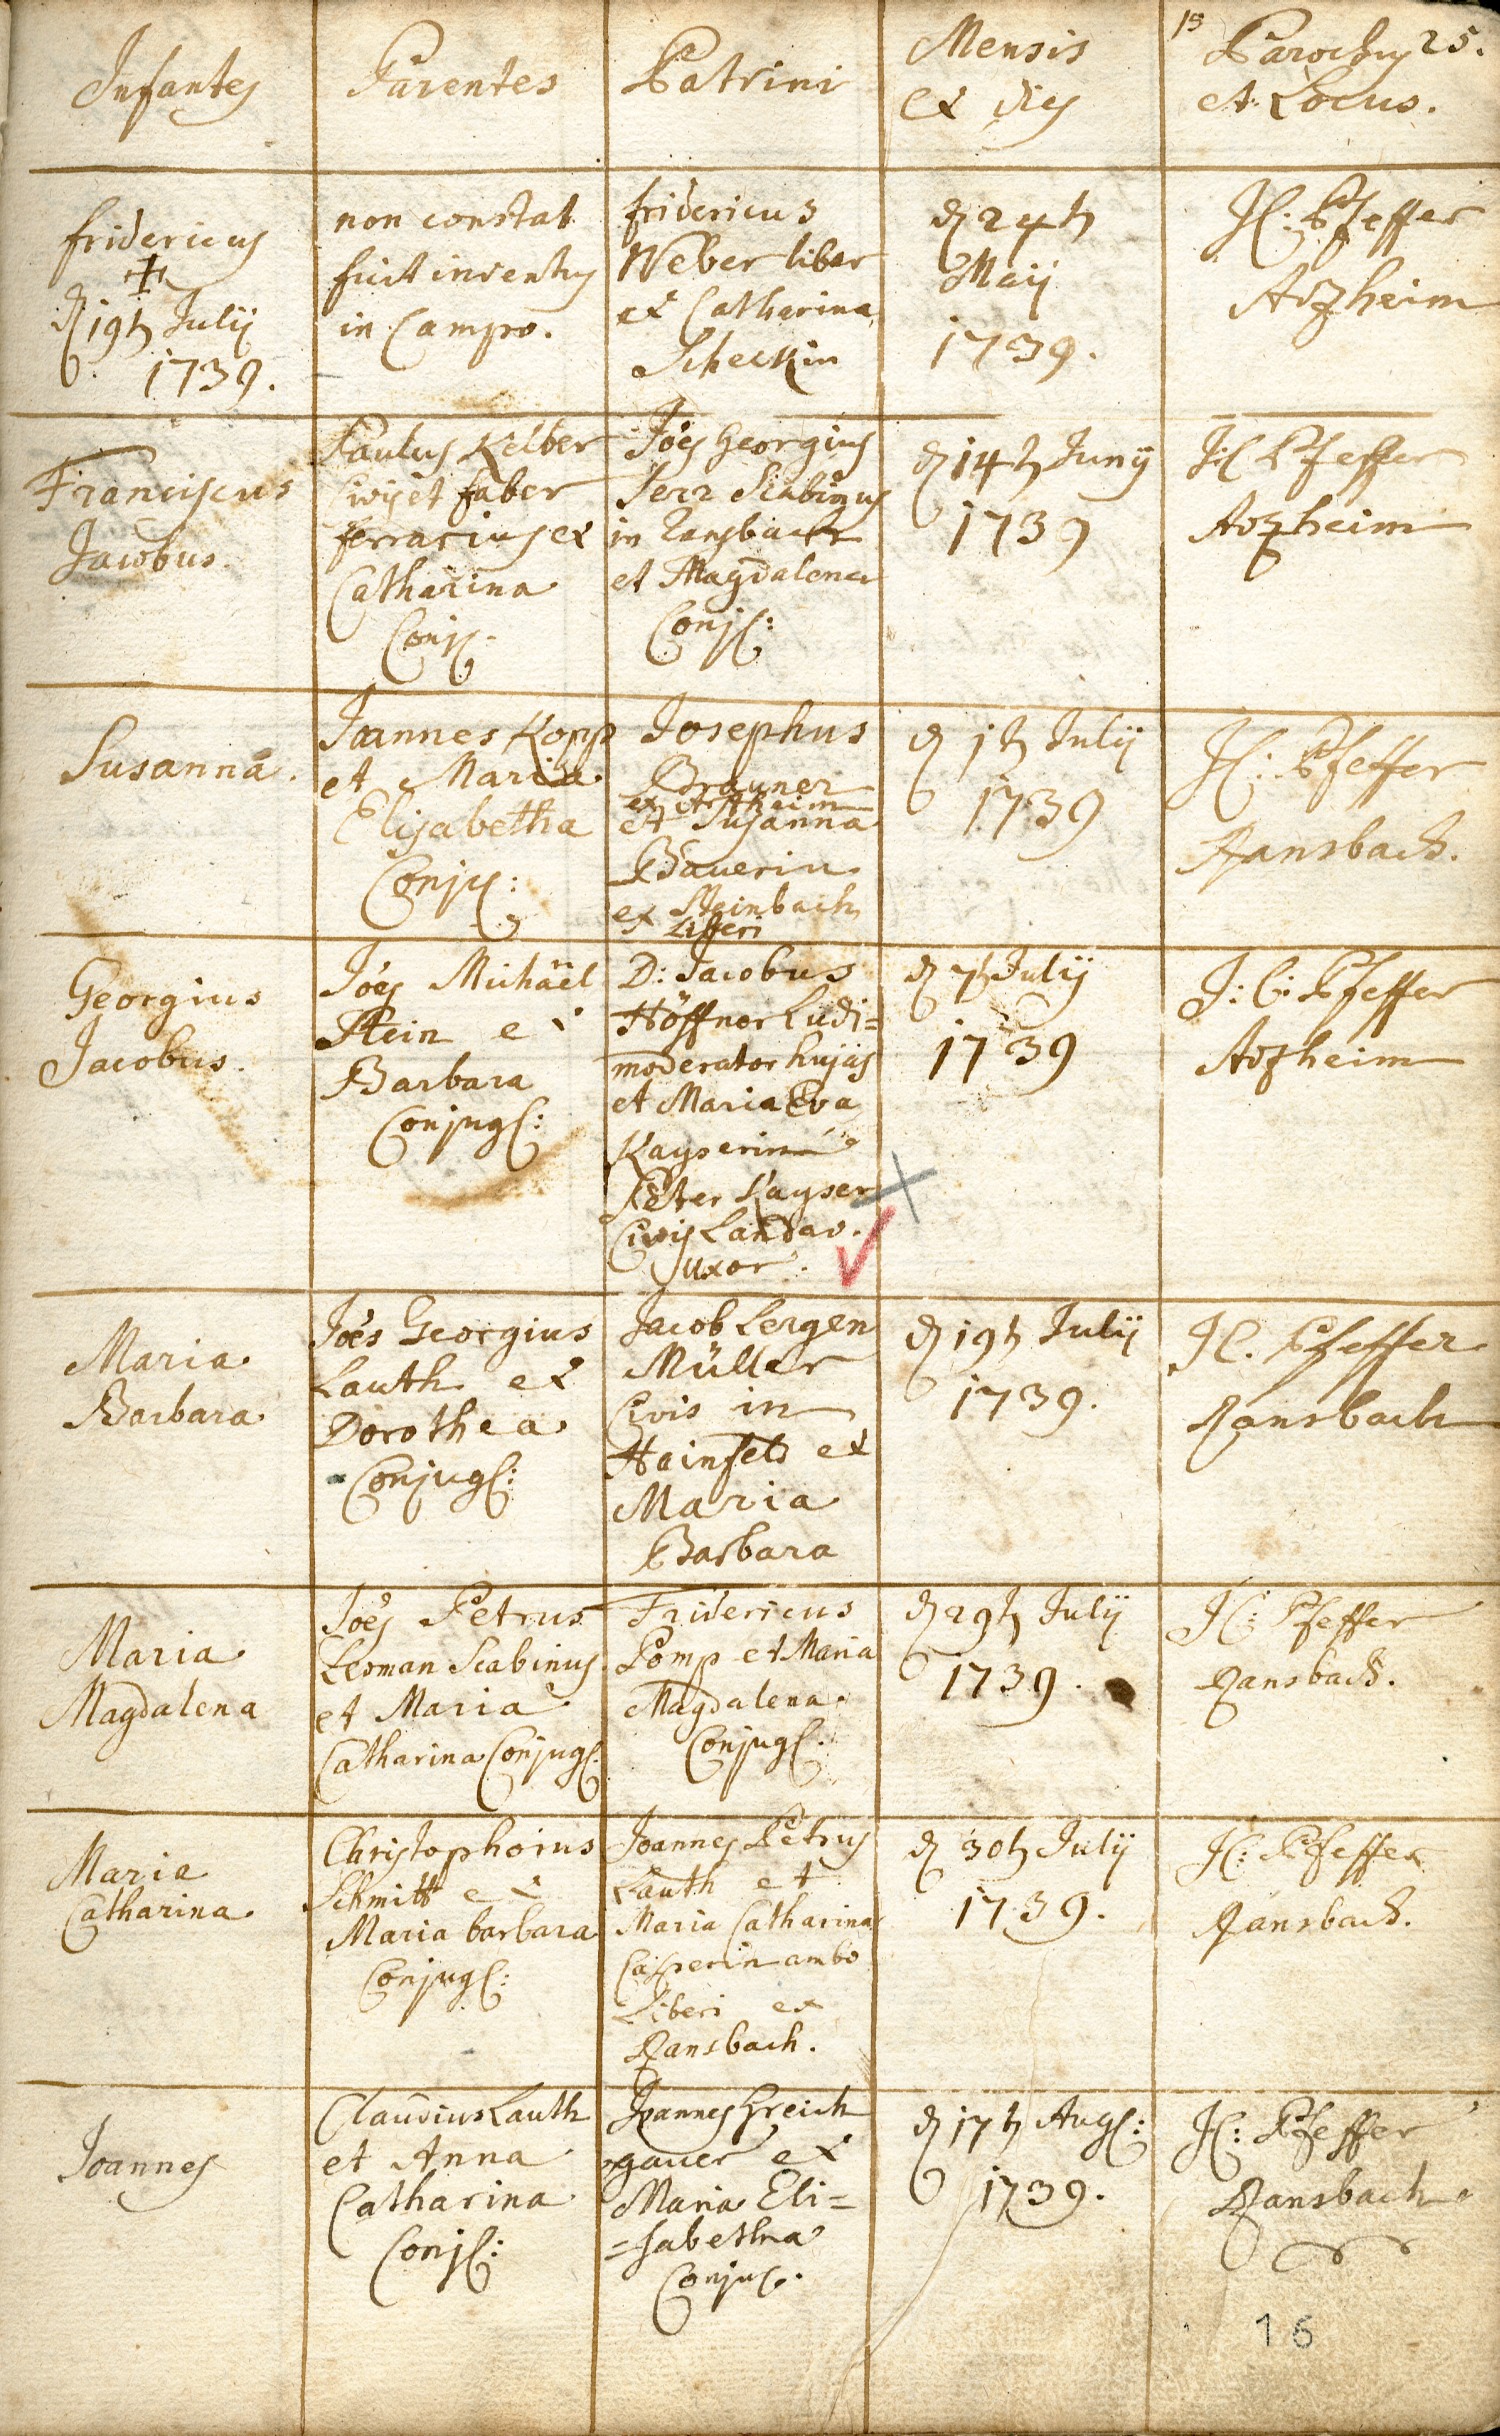 Infantes
Parentes
Patrini
Mensis
et dies
15
25.
Parochus
et Locus.
fridericus
†
d 19t Julij
1739.
non constat
fuit inventus
in Campo.
fridericus
Weber liber
et Catharina
Scheckin
d 24t
Maij
1739.
JC: Pfeffer
Arzheim
Franciscus
Jacobus.
Paulus Kelber
Civis et faber
ferrarius et
Catharina
Conj.
Jöes Georgius
Serr Scabinus
in Ransbach
et Magdalena
Conj:
d 14t Junij
1739
JC Pfeffer
Arzheim
Susanna.
Joannes Kopp
et Maria
Elisabetha
Conju:
Josephus
Brauner
et Susanna
Bauerin
ex Steinbach
Liberi
d 1t Julij
1739
JC: Pfeffer
Ransbach.
Georgius
Jacobus.
Jöes Michäel
Stein et
Barbara
Conjug:
D: Jacobus
Höffner Ludi=
moderator hujas
et Maria Eva
Kayserin
Peter Kayser
Civis Landav.
uxor.
d 7t Julij
1739
J: C: Pfeffer
Arzheim
Maria
Barbara
Jöes Georgius
Lauth et
Dorothea
Conjug:
Jacob Lergen
Müller
Civis in
Hainfeld et
Maria
Barbara
d 19t Julij
1739.
JC. Pfeffer
Ransbach
Maria
Magdalena
Jöes Petrus
Lerman Scabinus
et Maria
Catharina Conjug:
Fridericus
Pomp et Maria
Magdalena
Conjug:
d 29t Julij
1739.
JC: Pfeffer
Ransbach.
Maria
Catharina
Christophorus
Schmitt et
Maria barbara
Conjug:
Joannes Petrus
Lauth et
Maria Catharina
Casperin ambo
Liberi ex
Ransbach.
d 30t Julij
1739.
JC: Pfeffer
Ransbach.
Joannes
Claudius Lauth
et Anna
Catharina
Conj:
Joannes Greich
gauer et
Maria Eli=
=sabetha
Conju.
d 17t Aug:
1739.
JC: Pfeffer
Ransbach
16